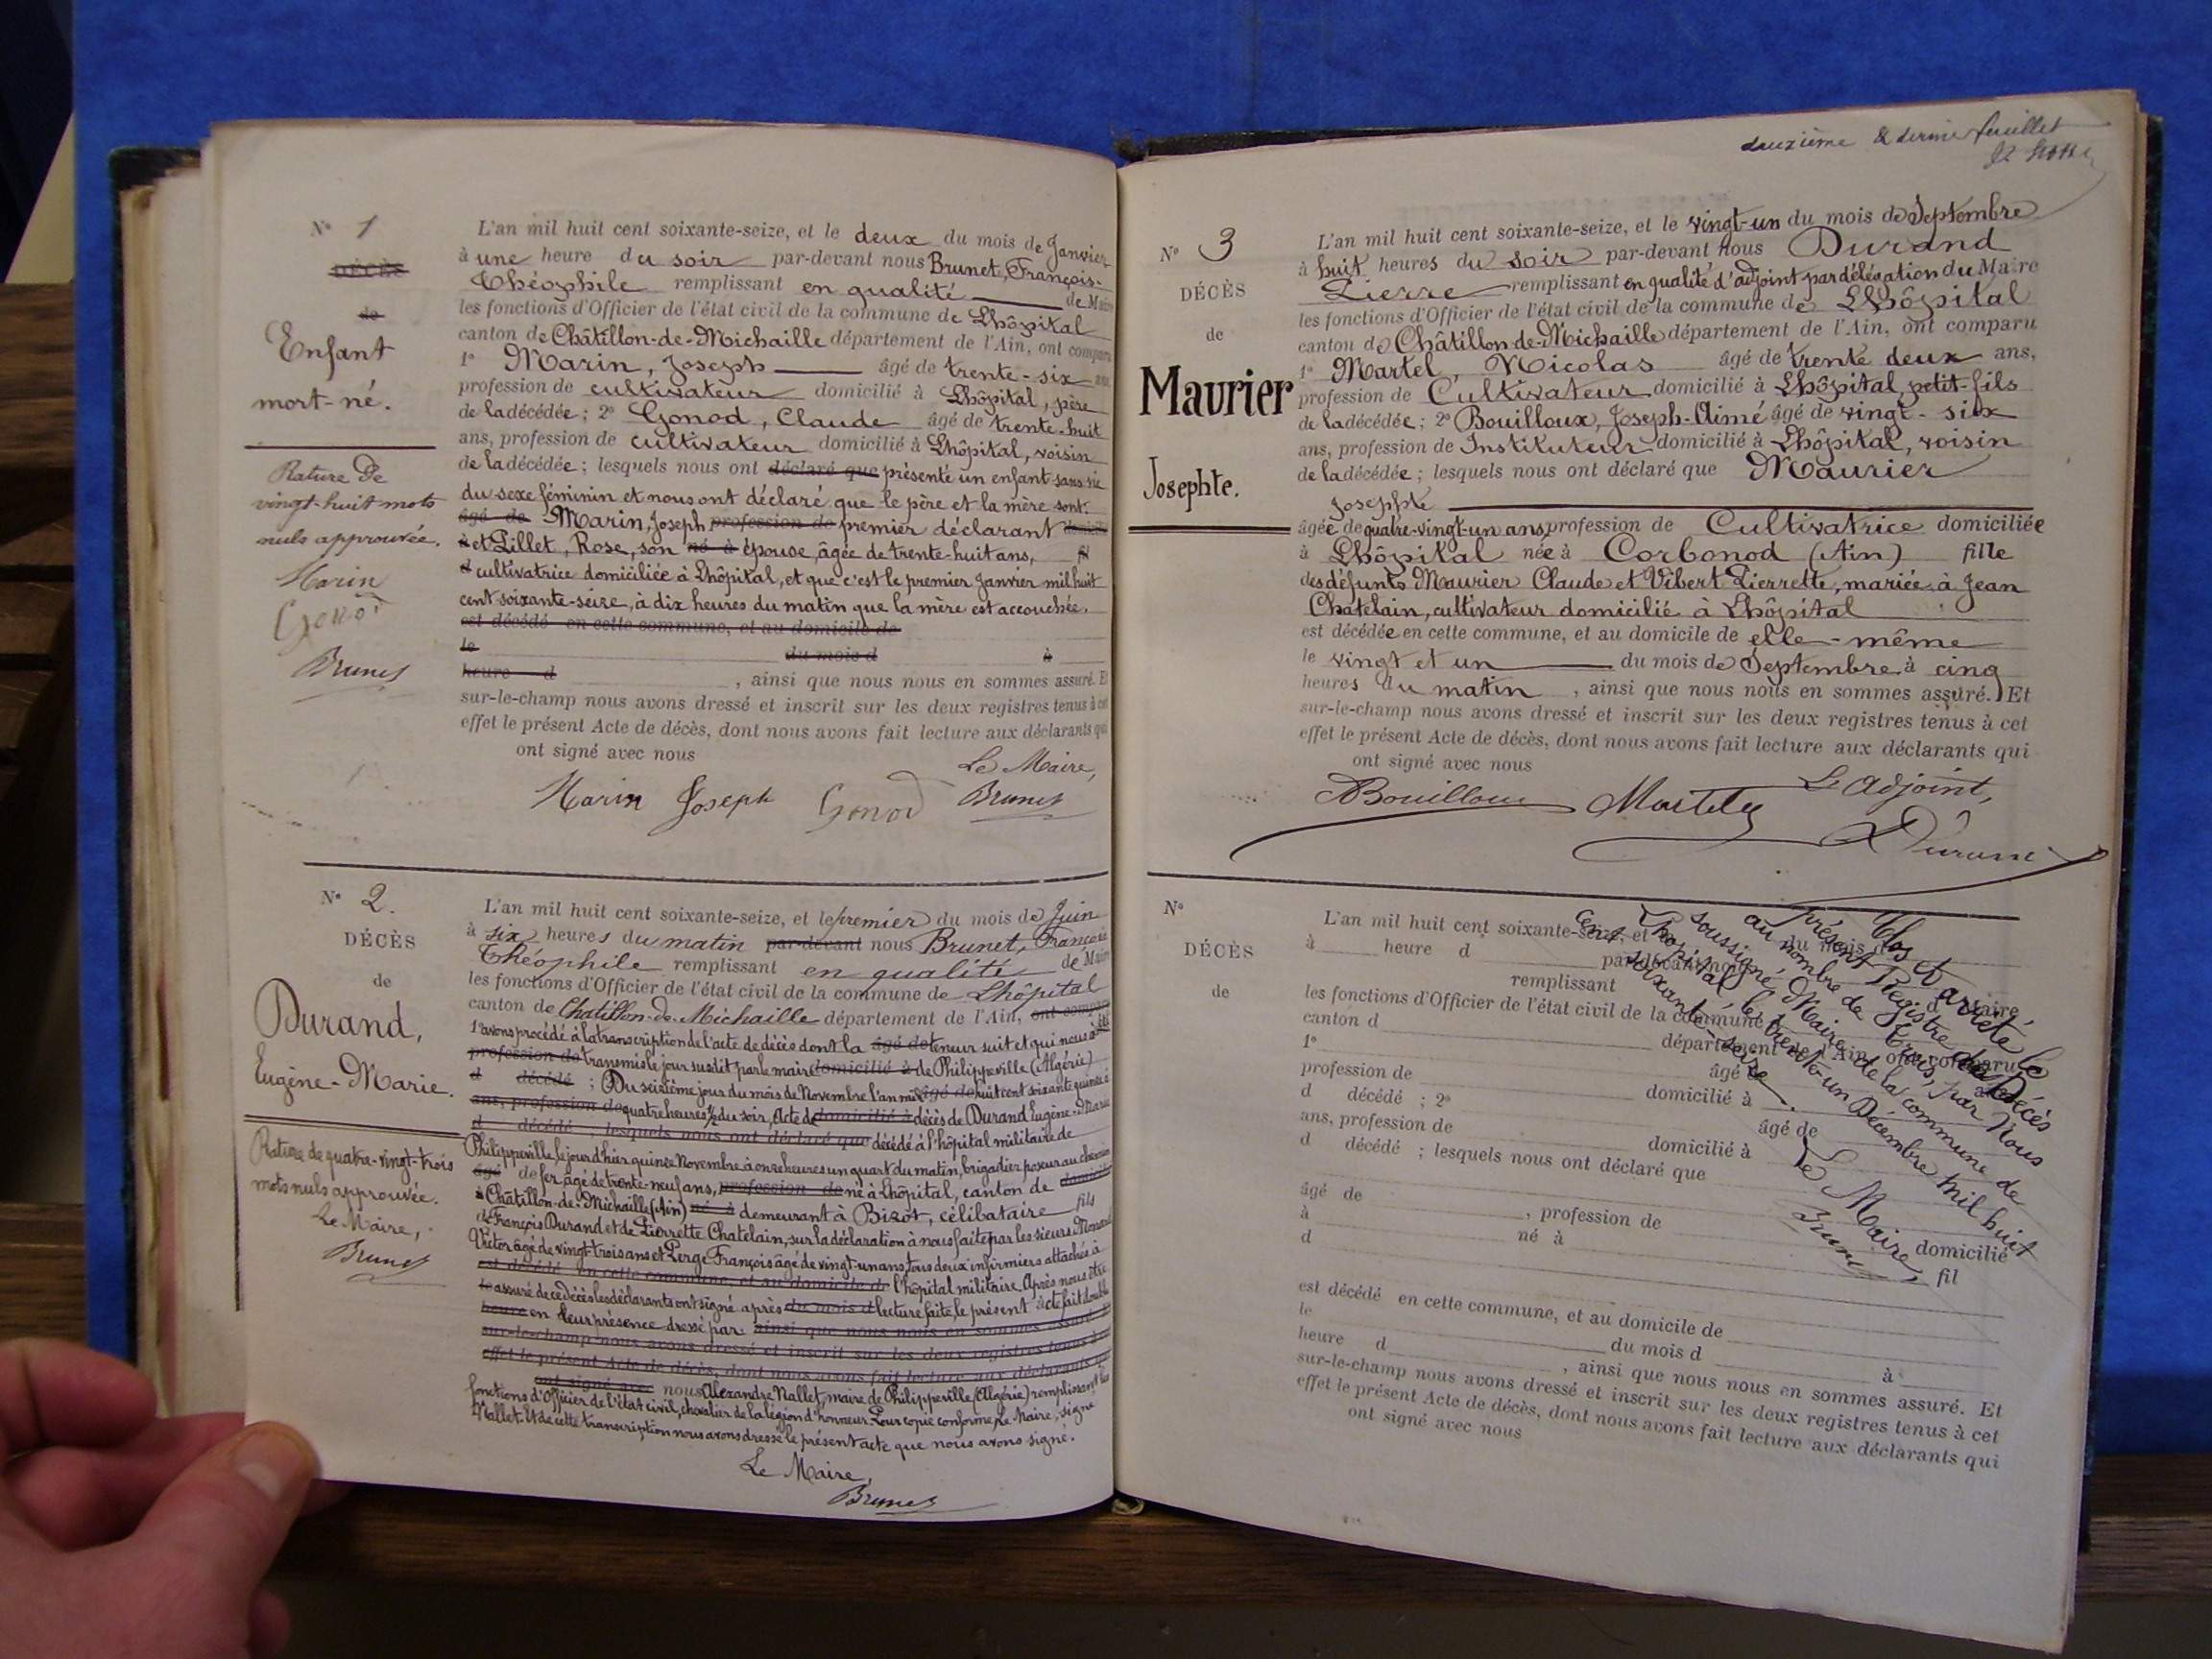 N° 1
DÉCÈS
de
Enfant
mort-né.
Rature de
vingt-huit mots
nuls approuvée.
Marin
Gonod
Brunet
L'an mil huit cent soixante-seize, et le deux du mois de Janvier
à une heure du soir par-devant nous Brunet, François-
Théophile remplissant en qualité de Maire
les fonctions d'Officier de l'état civil de la commune de Lhôpital
canton de Châtillon-de-Michaille département de l'Ain, ont comparu
1° Marin, Joseph âgé de trente-six ans
profession de cultivateur domicilié à Lhôpital, père
de la décédée ; 2° Gonod, Claude âgé de trente-huit
ans, profession de cultivateur domicilié à Lhôpital, voisin
de la décédée ; lesquels nous ont déclaré que présenté un enfant sans vie
du sexe féminin et nous ont déclaré que le père et la mère sont:
âgé de Marin, Joseph profession de premier déclarant domicilié
à et Pillet, Rose, son né à épouse, âgée de trente-huit ans, fil
d cultivatrice domiciliée à Lhôpital, et que c'est le premier Janvier mil huit
cent soixante-seize, à dix heures du matin que la mère est accouchée.
est décédé en cette commune, et au domicile de
le du mois d à
heure d , ainsi que nous nous en sommes assuré. Et
sur-le-champ nous avons dressé et inscrit sur les deux registres tenus à cet
effet le présent Acte de décès, dont nous avons fait lecture aux déclarants qui
ont signé avec nous
Le Maire,
Marin Joseph Gonod Brunet
N° 2.
DÉCÈS
de
Durand,
Eugène-Marie.
Rature de quatre-vingt-trois
mots nuls approuvée.
Le Maire,
Brunet
L'an mil huit cent soixante-seize, et le premier du mois de Juin
à six heures du matin par-devant nous Brunet, François
Théophile remplissant en qualité de Maire
les fonctions d'Officier de l'état civil de la commune de Lhôpital
canton de Chatillon-de-Michaille département de l'Ain, ont comparu
1° avons procédé à la transcription de l'acte de décès dont la âgé de teneur suit et qui nous a été
profession de transmis le jour susdit par le maire domicilié à de Philippeville (Algérie)
d décédé ; Du seizième jour du mois de Novembre l'an mil âgé de huit cent soixante quinze à
ans, profession de quatre heures ½ du soir, Acte de domicilié à décès de Durand Eugène-Marie
d décédé ; lesquels nous ont déclaré que décédé à l'hôpital militaire de
Philippeville, le jour d'hier quinze Novembre à onze heures un quart du matin, brigadier poseur au chemin
âgé de fer, âgé de trente-neuf ans, profession de né à Lhôpital, canton de domicilié
à Châtillon-de-Michaille (Ain) né à demeurant à Bizot, célibataire fils
de François Durand et de Pierrette Chatelain, sur la déclaration à nous faite par les sieurs
Victor âgé de vingt-trois ans et Perge François âgé de vingt-un ans, tous deux infirmiers attachés à
est décédé en cette commune, et au domicile de l'hôpital militaire. Après nous être
le assuré de ce décès les déclarants ont signé après du mois d lecture faite, le présent acte fait double
heure en leur présence dressé par ainsi que nous nous en sommes assuré. Et
sur-le-champ nous avons dressé et inscrit sur les deux registres tenus à cet
effet le présent Acte de décès, dont nous avons fait lecture aux déclarants qui
ont signé avec nous Alexandre Nallet, maire de Philippeville (Algérie) remplissant les
fonctions d'Officier de l'état civil, chevalier de la légion d'honneur. Pour copie conforme, Le Maire, signé
Nallet. Et de cette transcription nous avons dressé le présent acte que nous avons signé.
Le Maire,
Brunet
deuxième & dernier feuillet
N° 3
DÉCÈS
de
Maurier
Josephte.
L'an mil huit cent soixante-seize, et le vingt-un du mois de Septembre
à huit heures du soir par-devant nous Durand
Pierre remplissant en qualité d'adjoint par délégation du Maire
les fonctions d'Officier de l'état civil de la commune de Lhôpital
canton de Châtillon-de-Michaille département de l'Ain, ont comparu
1° Martel, Nicolas âgé de trente deux ans,
profession de Cultivateur domicilié à Lhôpital, petit-fils
de la décédée ; 2° Bouilloux, Joseph-Aimé âgé de vingt-six
ans, profession de Instituteur domicilié à Lhôpital, voisin
de la décédée ; lesquels nous ont déclaré que Maurier
Josephte
âgée de quatre-vingt-un ans, profession de Cultivatrice domiciliée
à Lhôpital née à Corbonod (Ain) fille
des défunts Maurier Claude et Vibert Pierrette, mariée à Jean
Chatelain, cultivateur domicilié à Lhôpital
est décédée en cette commune, et au domicile de elle-même
le vingt et un du mois de Septembre à cinq
heures du matin , ainsi que nous nous en sommes assuré. Et
sur-le-champ nous avons dressé et inscrit sur les deux registres tenus à cet
effet le présent Acte de décès, dont nous avons fait lecture aux déclarants qui
ont signé avec nous
L'adjoint,
Bouilloux Martel Durand
N°
DÉCÈS
de
L'an mil huit cent soixante-seize, et le du mois d
à heure d par-devant nous
remplissant d Maire
les fonctions d'Officier de l'état civil de la commune
canton d département de l'Ain, ont comparu
1° âgé de
profession de domicilié à
d décédé ; 2° âgé de
ans, profession de domicilié à
d décédé ; lesquels nous ont déclaré que
âgé de , profession de domicilié
à né à fil
d
est décédé en cette commune, et au domicile de
le du mois d à
heure d , ainsi que nous nous en sommes assuré. Et
sur-le-champ nous avons dressé et inscrit sur les deux registres tenus à cet
effet le présent Acte de décès, dont nous avons fait lecture aux déclarants qui
ont signé avec nous
Clos et arrêté le
présent Registre des Décès
au nombre de trois, par Nous
soussigné, Maire de la commune de
Lhôpital, le trente-un Décembre mil huit
cent soixante-seize.
Le Maire,
Brunet